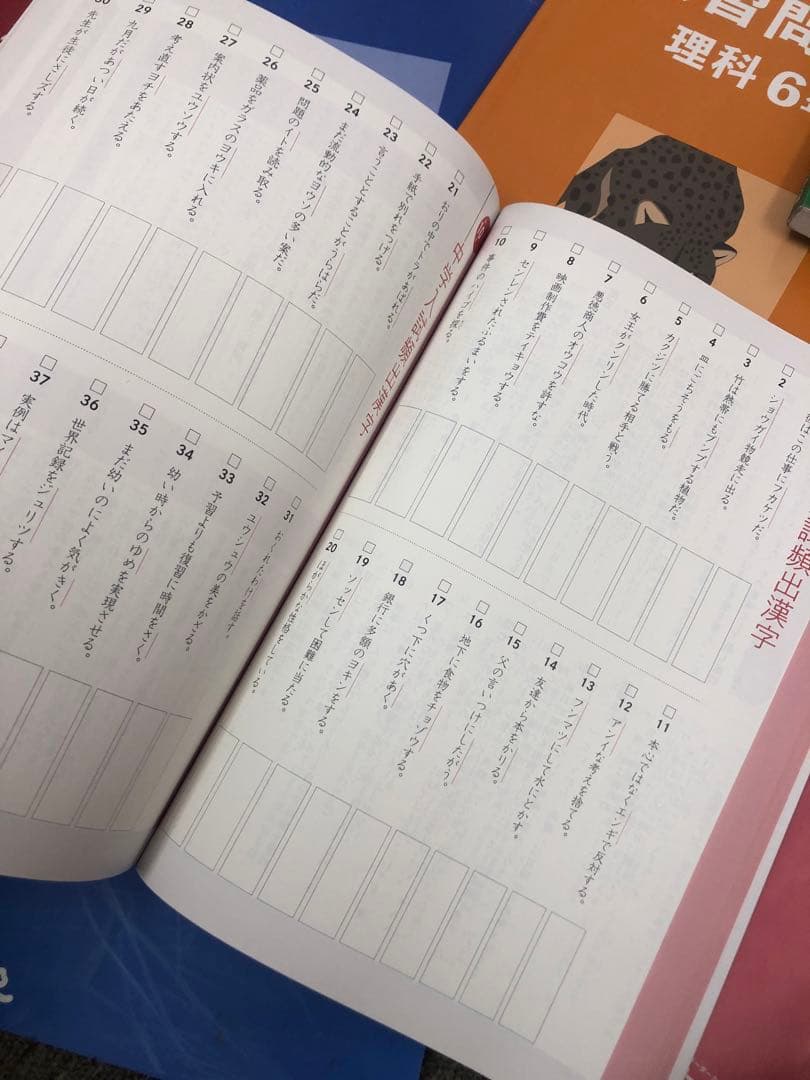 習問
理科6
試頻出漢字
はこの仕事にフカケツだ。
2 ショウガイ物競走に出る。
3 竹は熱帯にもブンプする植物だ。
4 皿にごちそうをもる。
5 カクジツに勝てる相手と戦う。
6 女王がクンリンした時代。
7 悪徳商人のオウコウを許すな。
8 映画制作費をテイキョウする。
9 センレンされたふるまいをする。
10 事件のハイゴを探る。
11 本心ではなくエンギで反対する。
12 アンイな考えを捨てる。
13 フンマツにして水にとかす。
14 友達から本をかりる。
15 父の言いつけにしたがう。
16 地下に食物をチョゾウする。
17 くつ下に穴があく。
18 銀行に多額のヨキンをする。
19 ソッセンして困難に当たる。
20 ほがらかな性格をしている。
中学入試頻出漢字
21 おりの中でトラがあばれる。
22 手紙で別れをつげる。
23 言うこととすることがうらはらだ。
24 まだ流動的なヨウソの多い案だ。
25 問題のイトを読み取る。
26 薬品をガラスのヨウキに入れる。
27 案内状をユウソウする。
28 考え直すヨチをあたえる。
29 九月だがあつい日が続く。
30 先生が生徒にさしズする。
31 おくれたわけを話す。
32 ユウシュウの美をかざる。
33 予習よりも復習に時間をさく。
34 幼い時からのゆめを実現させる。
35 まだ幼いのによく気がきく。
36 世界記録をジュリツする。
37 実例はマイ